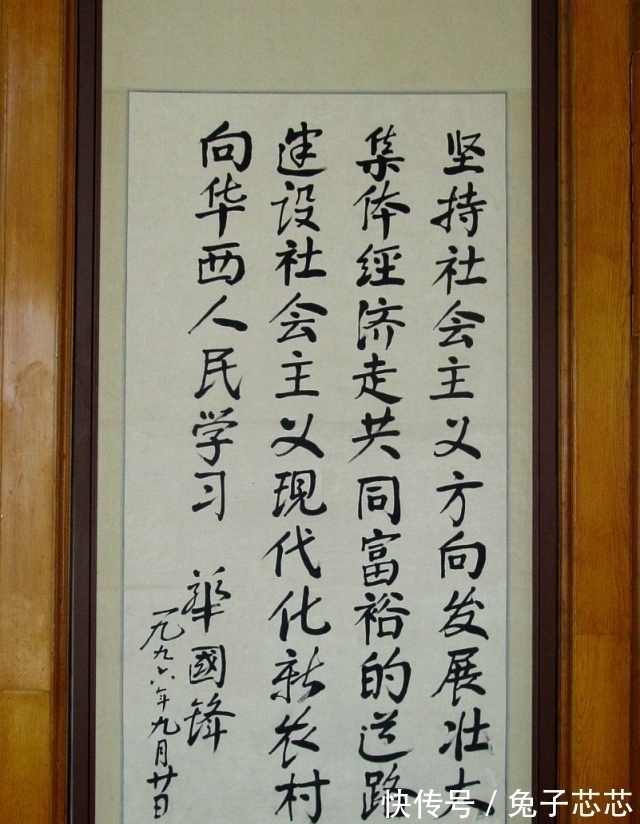 坚持社会主义方向发展壮大
集体经济走共同富裕的道路
建设社会主义现代化新农村
向华西人民学习
華國锋
一九九六年九月廿日
快传号 / 兔子芯芯